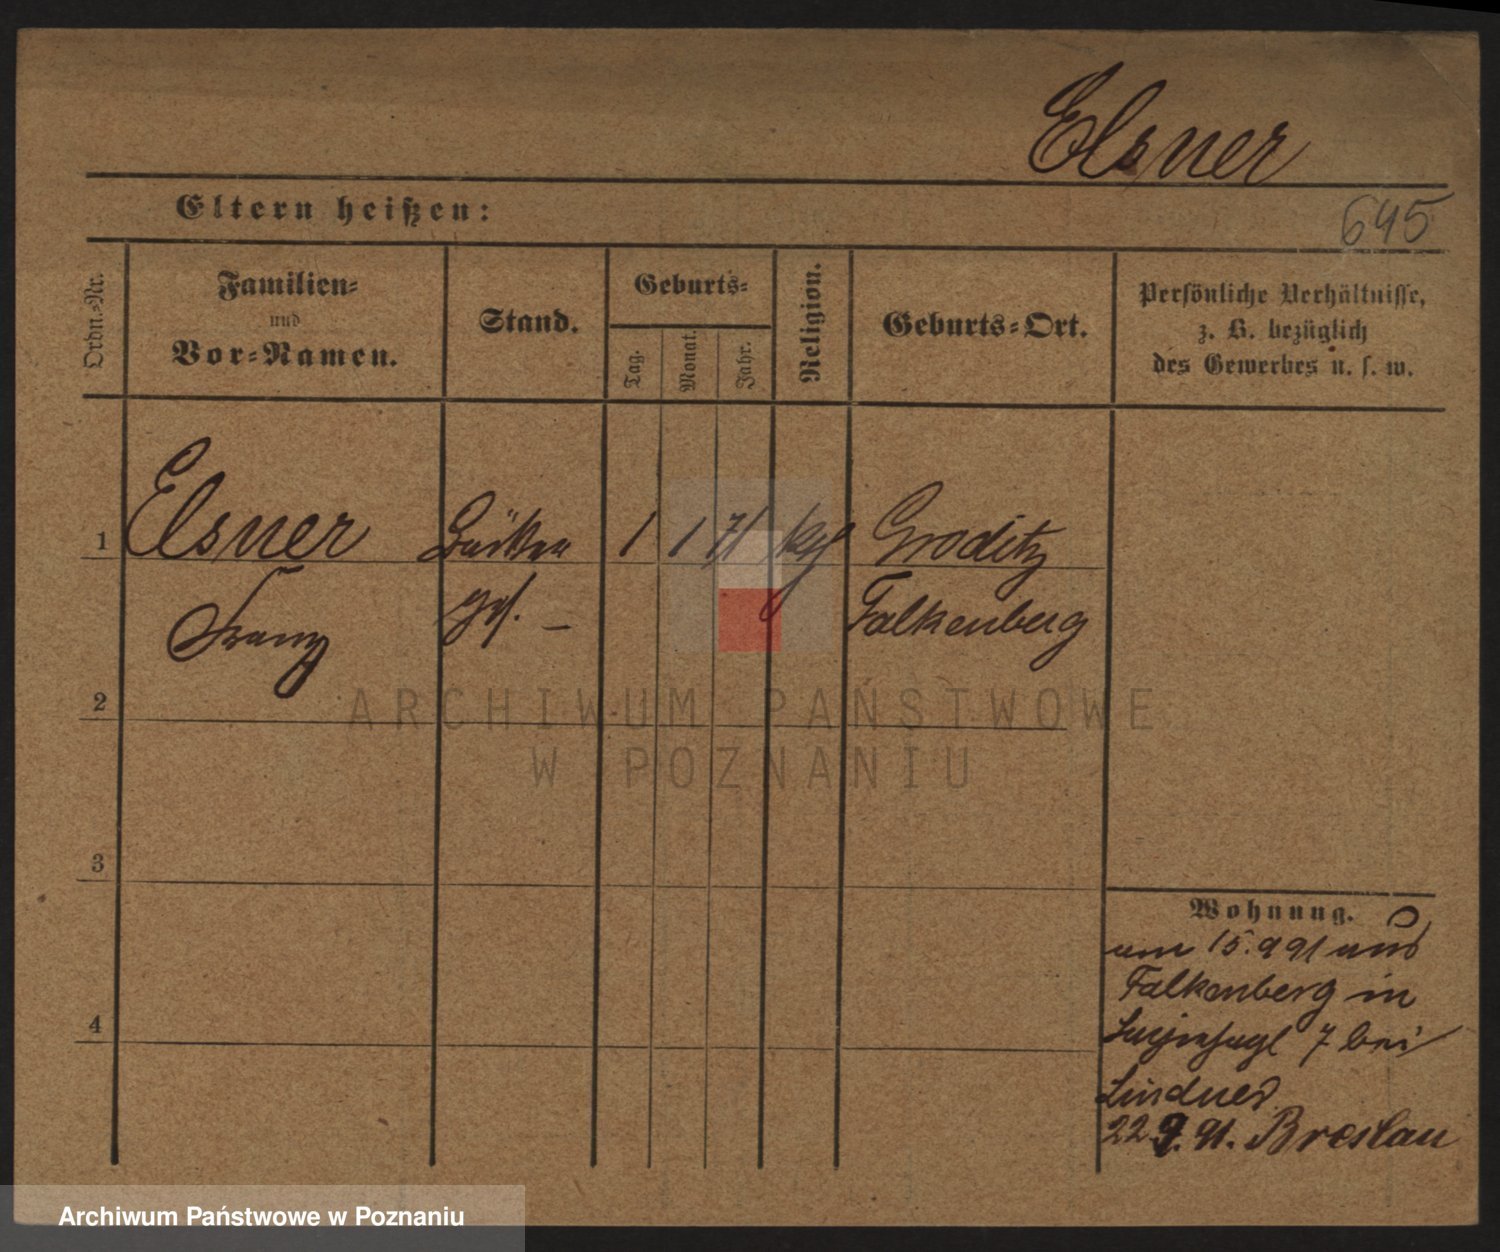 Elsner
Eltern heißen:
645
Ordn.-Nr.
Familien-
und
Vor-Namen.
Stand.
Geburts-
Tag.
Monat.
Jahr.
Religion.
Geburts-Ort.
Persönliche Verhältnisse,
z. B. bezüglich
des Gewerbes u. s. w.
1 Elsner Bäcker 1 1 71 kgl Groditz
Franz gs. – Falkenberg
2
ARCHIWUM PAŃSTWOWE
W POZNANIU
3
Wohnung.
am 15.9 91 aus
Falkenberg in
7 bei
4
Lindner
22.9.91. Breslau
Archiwum Państwowe w Poznaniu